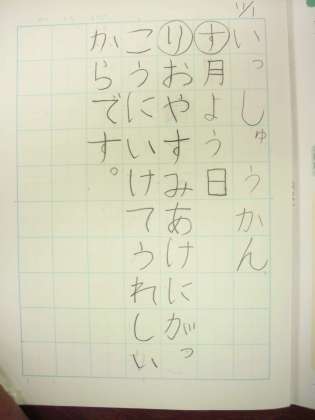 11/1
いっしゅうかん
す月よう日
りおやすみあけにがっ
こうにいけてうれしい
からです。